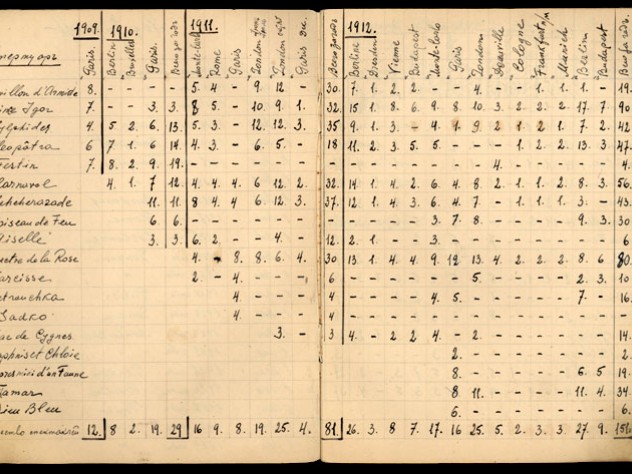 1909. 1910. 1911. 1912.
Paris. Berlin Bruxelles Paris. Monte-Carlo Rome Paris London London Paris Berlin Dresden Vienne Budapest Monte-Carlo Paris London Deauville Cologne Frankfurt a/M Munich Berlin Budapest
8. 5. 4 - 9. 12 - 30. 7. 1. 2. 2 - 4. - - 1. 1. 1. - 70
Igor 7. - - 3. 3. 8 5. - 10. 9. 1. 32. 15. 1. 8. 6. 9. 8 10. 3. 2. 2. 2. 17. 7. 90
4. 5 2. 6. 13. 5. 3. - 12. 12. 3. 35 9. 1. 3. - 4. 1. 9. 2 1 2 1. 7. 2. 42
6 7. 1. 6 14. 4. 3. - 6. 5. - 18 11. 2. 3. 5. 5 - - - 1. 2. 2. 13. 3. 47.
Festin 7. 8. 2. 9. 19. - - - - - - - - - - - - - 4. - - - - - 4.
Carnaval 4. 1. 7 12. 4. 4. 4. 6 12. 2. 32. 14. 1. 4. 2. 6. 4. 8 2. 1. 1. 2. 8 3. 56
Scheherazade 11. 11. 8 4. 4 6 12. 3 37. 12. 1. 4 3. 6. 4. 7. - 1. 1. 1. 9. 3. -
oiseau de Feu 6. 6. - - - - - - - - - - - 3. 7. 8. - - - - 9. 3. 30
Giselle 3. 3. 6. 2. - - 4. - 12. 2. 1. - - 3. - - - - - - - - 6
Spectre de la Rose 4. - 8. 8. 6. 4. 30 13. 1. 4. 4 9. 12 13. 4 2. 2. 2. 8. 6 80.
Narcisse 2. - 4. - - - 6 - - - - - - 5. - - - - 2. 3. 10
Petrouchka 4. - - - 4 - - - - 4. 5. - - - - - 7. - 16.
Sadko 4. - - - 4 - - - - - - - - - - - - - -
Lac de Cygnes 3. - 3 4. - 2 2 4. - 2. - - - - - - 14.
Daphnis et Chloie 2. - - - - - - - 2.
8. - - - - - 6. 5 19.
Tamar 8. 11. - - - - 11. 4. 34.
Dieu Bleu 6. - - - - - - - 6.
12. 8 2. 19. 29 16 9. 8. 19. 25. 4. 81. 26. 3. 8 7. 17. 16 25. 5. 2. 3. 3. 27 9. 151.